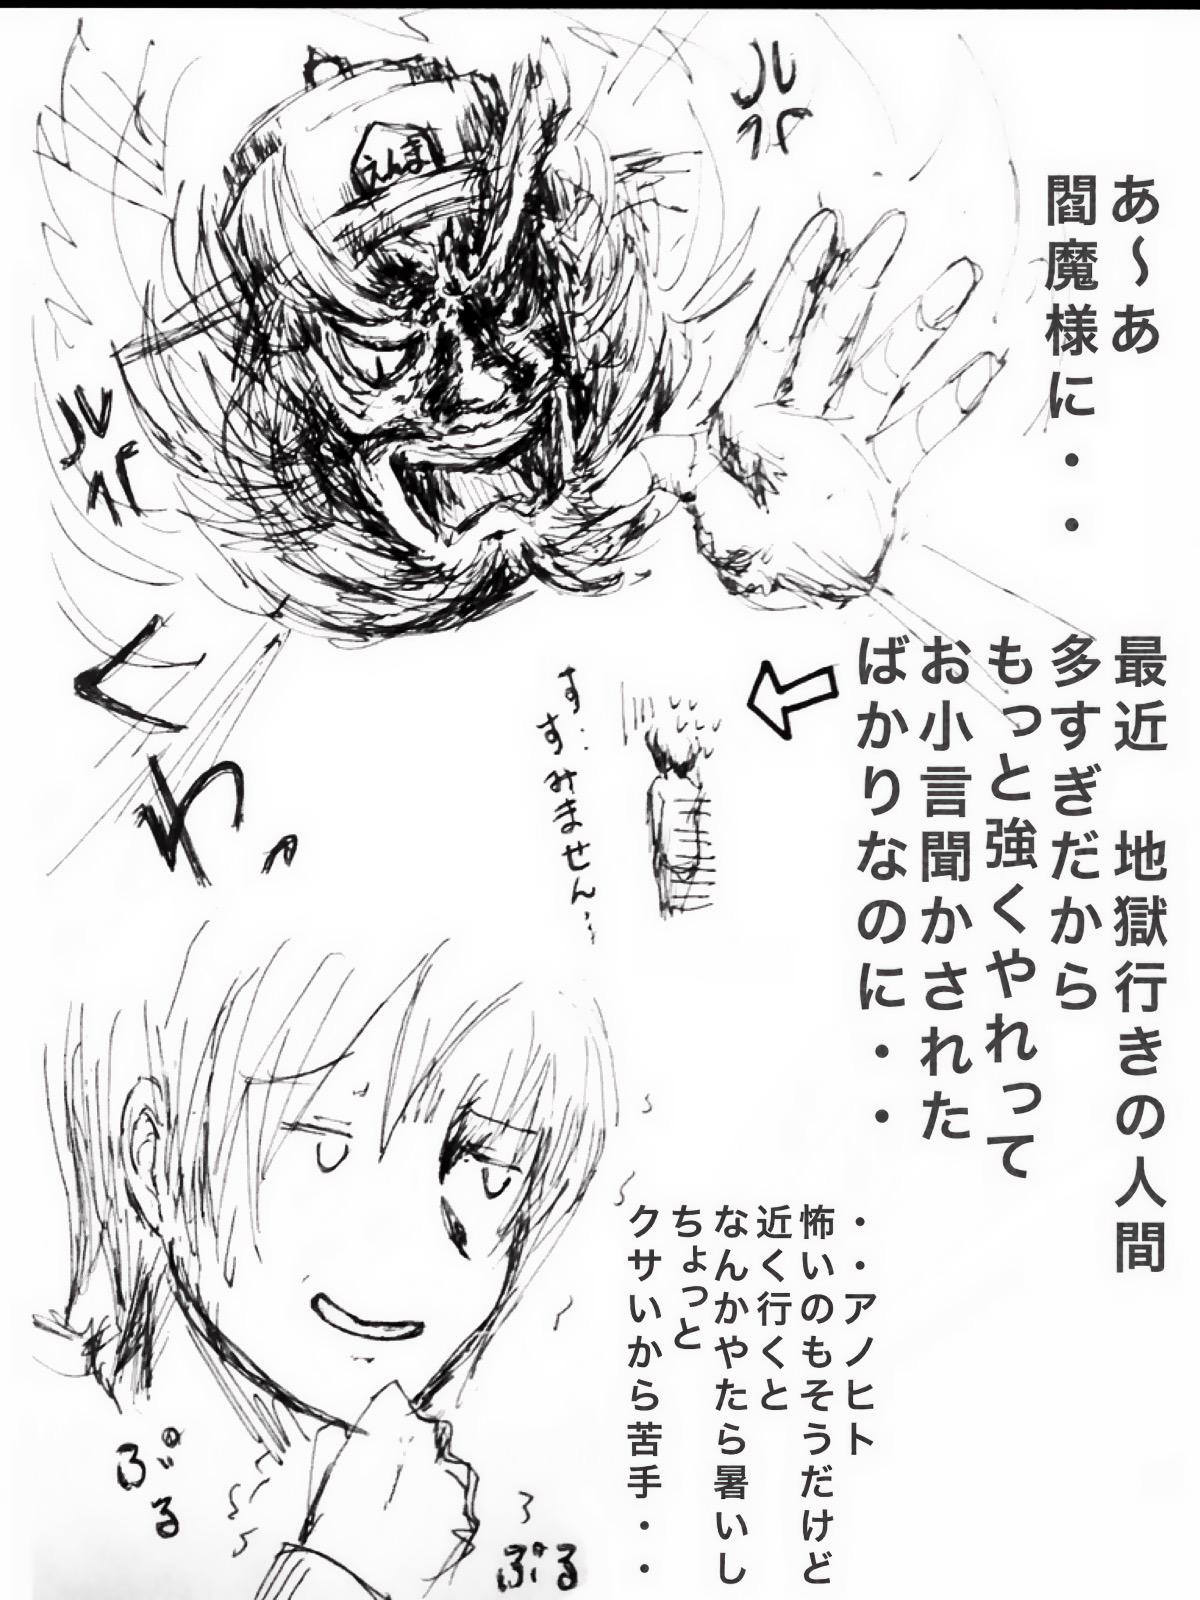 あ～あ
閻魔様に・・
最近 地獄行きの人間
多すぎだから
もっと強くやれって
お小言聞かされた
ばかりなのに・・
えんま
くわっ
す‥
すみません‥
・・アノヒト
怖いのもそうだけど
近く行くと
なんかやたら暑いし
ちょっと
クサいから苦手・・
ぷる
ぷる